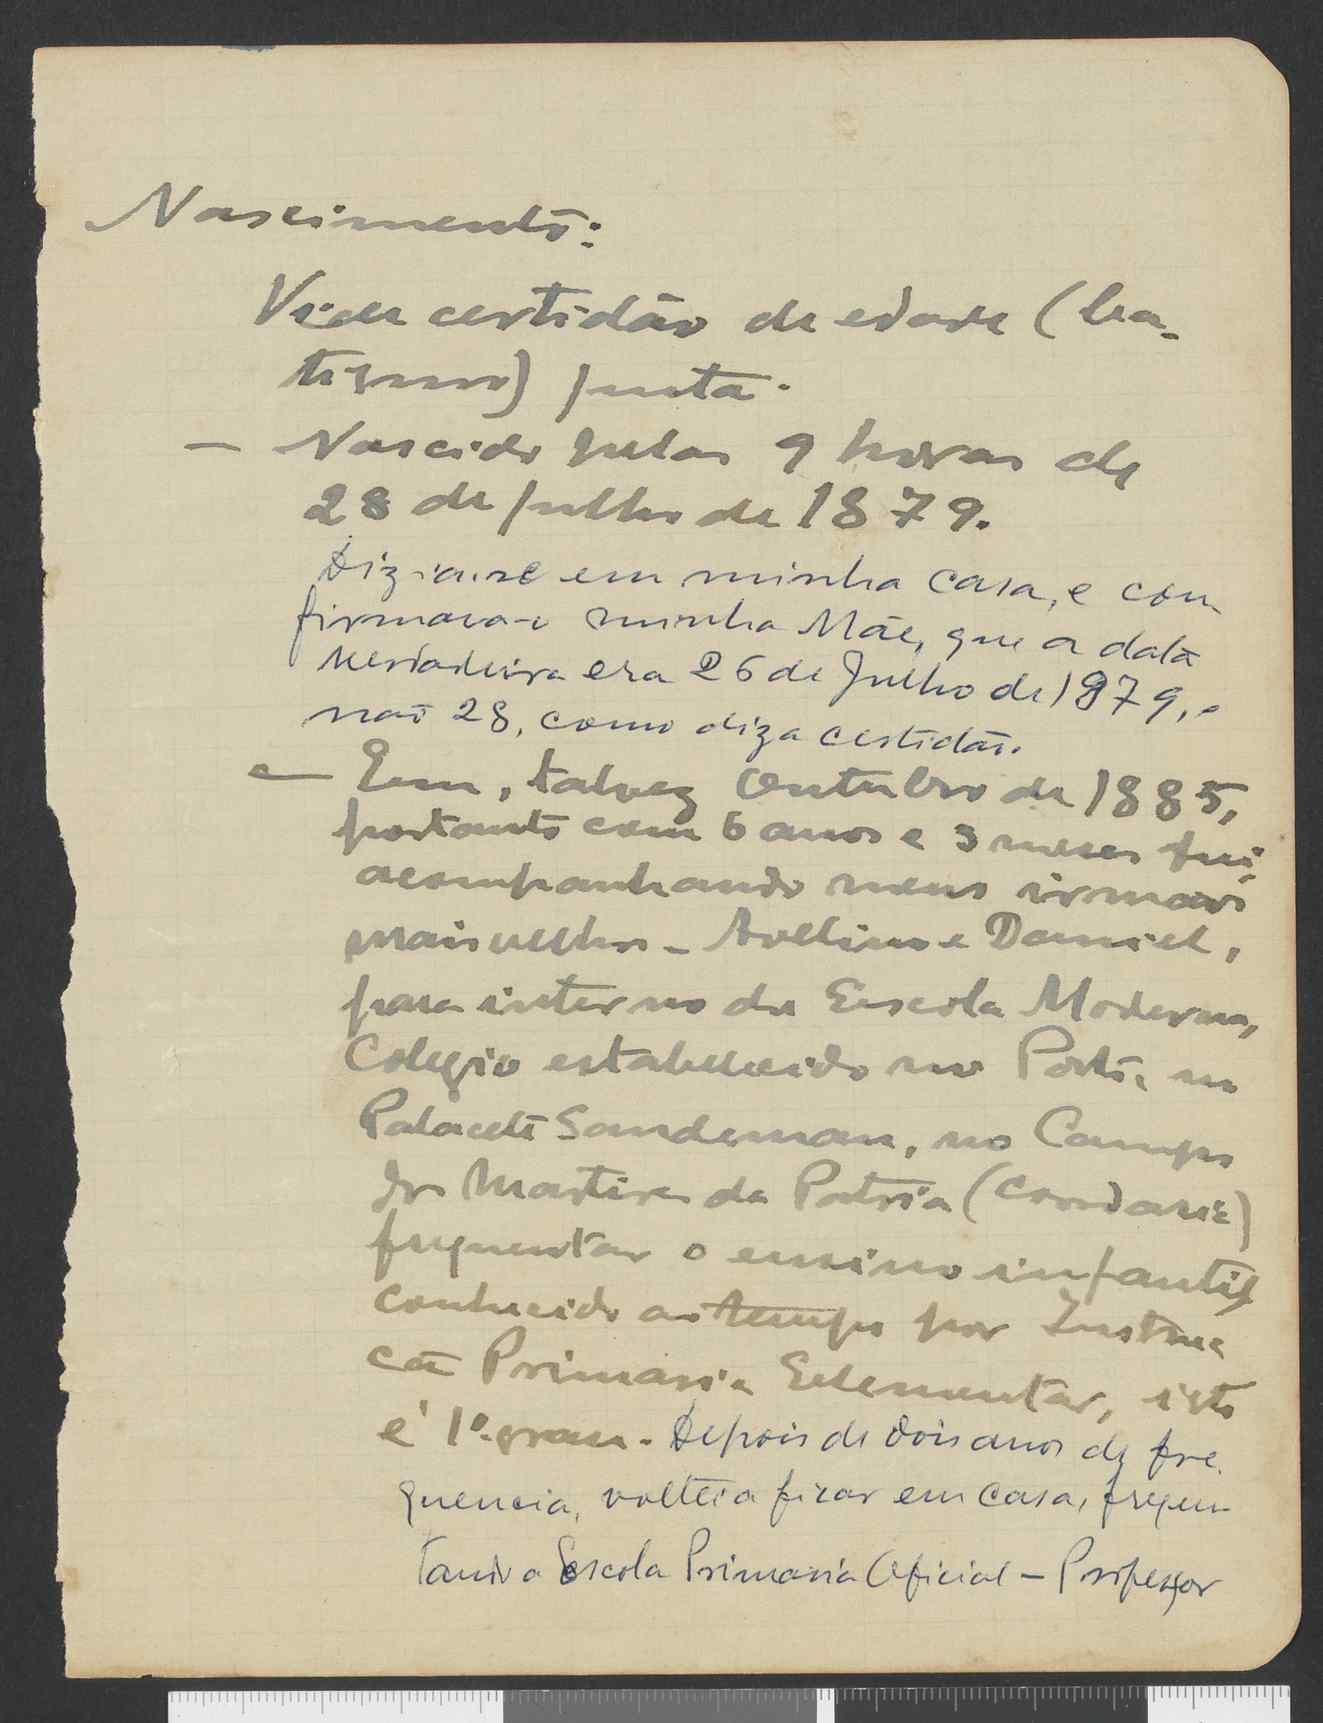 Nascimento:
Vide certidão de edade (ba-
tismo) junta.
— Nascido pelas 9 horas de
28 de julho de 1879.
Dizia-se em minha casa, e con-
firmava-o minha Mãe, que a data
verdadeira era 26 de Julho de 1879, e
não 28, como diz a certidão.
— Em, talvez Outubro de 1885,
portanto com 6 anos e 3 meses fui,
acompanhando meus irmaos
mais velhos - Avelino e Daniel,
para interno da Escola Moderna,
Colegio estabelecido no Porto, no
Palacete Sandeman, no Campo
dos Martires da Patria (Cordoaria)
frequentar o ensino infantil,
conhecido ao tempo por Instru
cão Primaria Elementar, isto
é 1º grau. Depois de dois anos de fre-
quencia, voltei a ficar em casa, frequen
tando a Escola Primaria Oficial - Professor